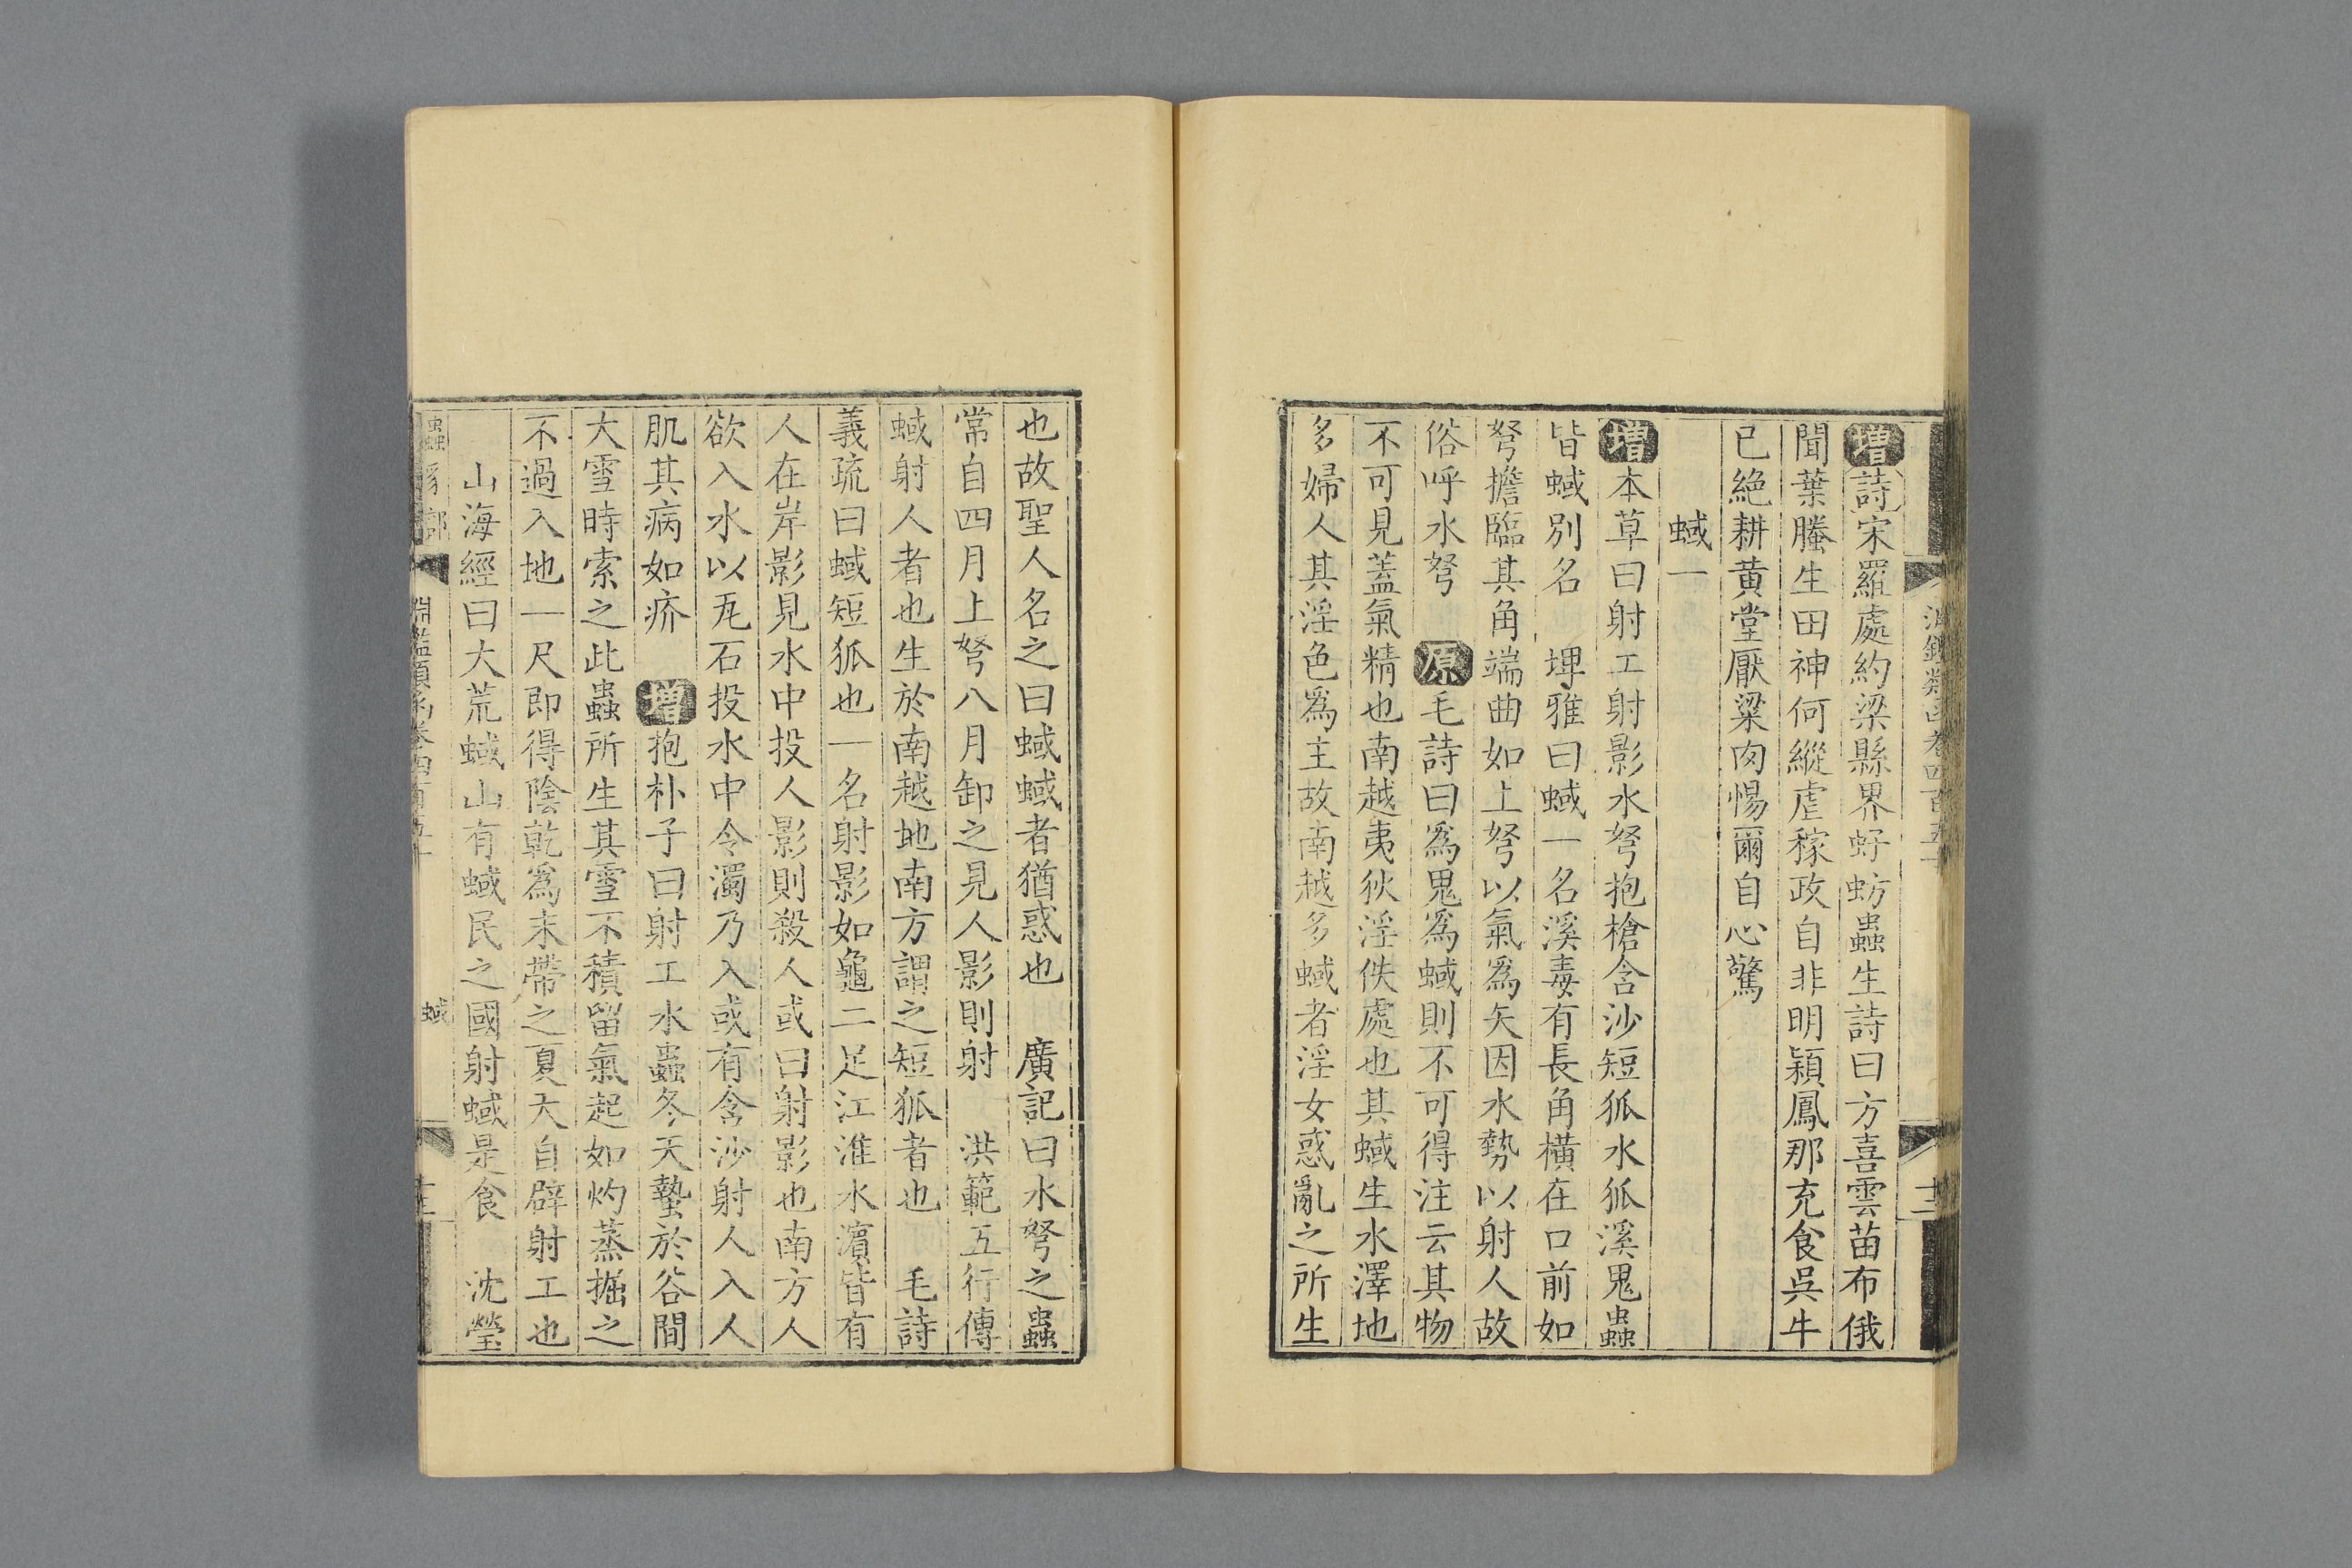 增詩宋羅處約梁縣界虸蚄蟲生詩曰方喜雲苗布俄
聞葉螣生田神何縱虐稼政自非明潁鳳那充食吳牛
已絕耕黃堂厭粱肉惕爾自心驚
蜮一
增本草曰射工射影水弩抱槍含沙短狐水狐溪鬼蟲
皆蜮別名　埤雅曰蜮一名溪毒有長角橫在口前如
弩擔臨其角端曲如上弩以氣爲矢因水勢以射人故
俗呼水弩　原毛詩曰爲鬼爲蜮則不可得注云其物
不可見蓋氣精也南越夷狄淫佚處也其蜮生水澤地
多婦人其淫色爲主故南越多蜮者淫女惑亂之所生
也故聖人名之曰蜮蜮者猶惑也　廣記曰水弩之蟲
常自四月上弩八月卸之見人影則射　洪範五行傳
蜮射人者也生於南越地南方謂之短狐者也　毛詩
義疏曰蜮短狐也一名射影如龜二足江淮水濵皆有
人在岸影見水中投人影則殺人或曰射影也南方人
欲入水以瓦石投水中令濁乃入或有含沙射人入人
肌其病如疥　增抱朴子曰射工水蟲冬天蟄於谷間
大雪時索之此蟲所生其雪不積留氣起如灼蒸掘之
不過入地一尺即得陰乾爲末帶之夏天自辟射工也
山海經曰大荒蜮山有蜮民之國射蜮是食　沈瑩
蟲豸部
淵鑑類函卷四百五十
蜮